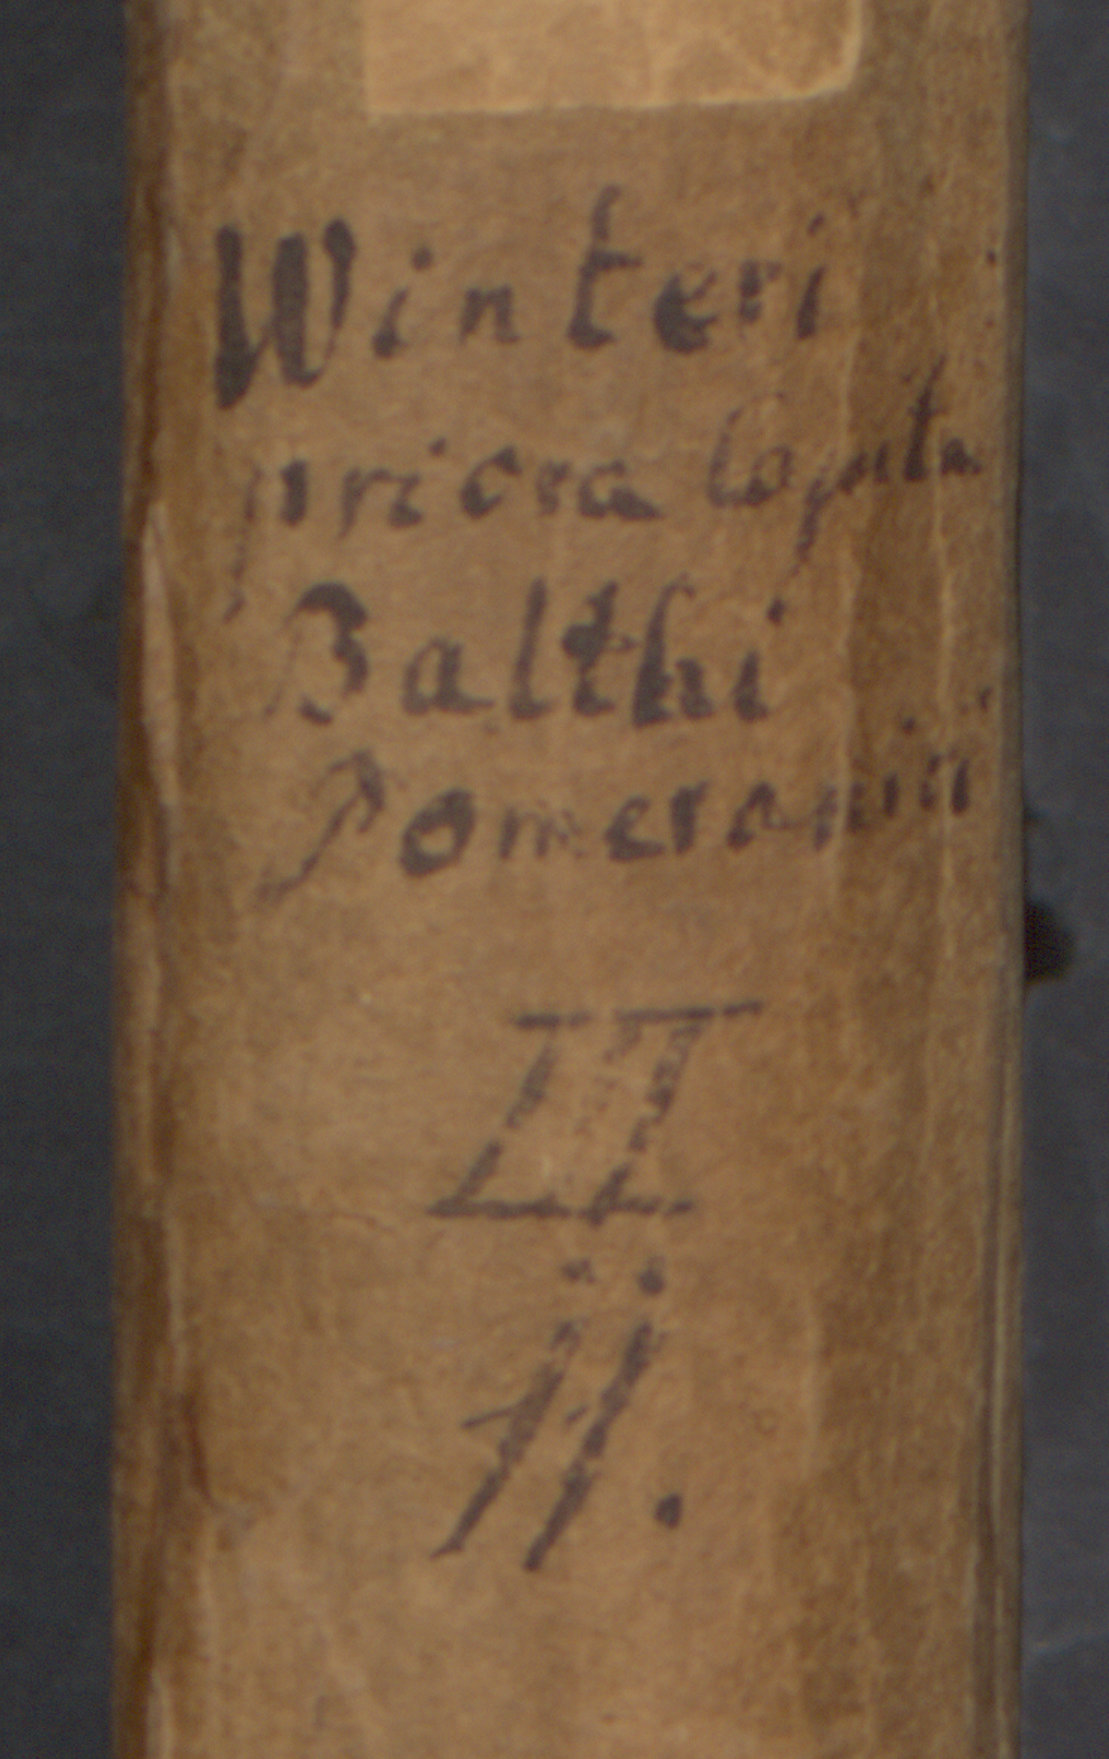 Winteri
priora Caputa
Balthi
Pomeranici
II
11.